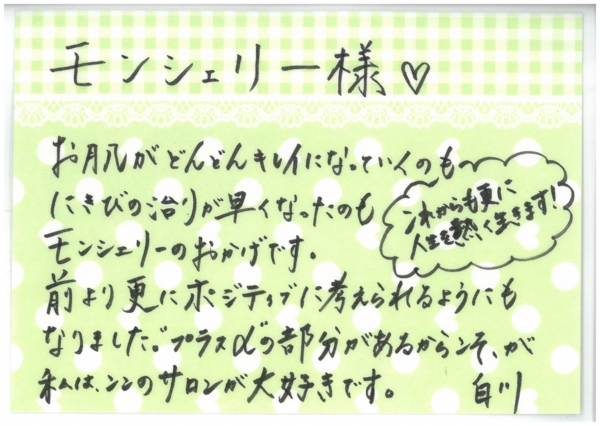 モンシェリー様♡
お肌がどんどんキレイになっていくのも
にきびの治りが早くなったのも
モンシェリーのおかげです。
前より更にポジティブに考えられるようにも
なりました。"プラスα"の部分があるからこそ、が
私は、ここのサロンが大好きです。
白川
これからも更に
人生を熱く生きます!